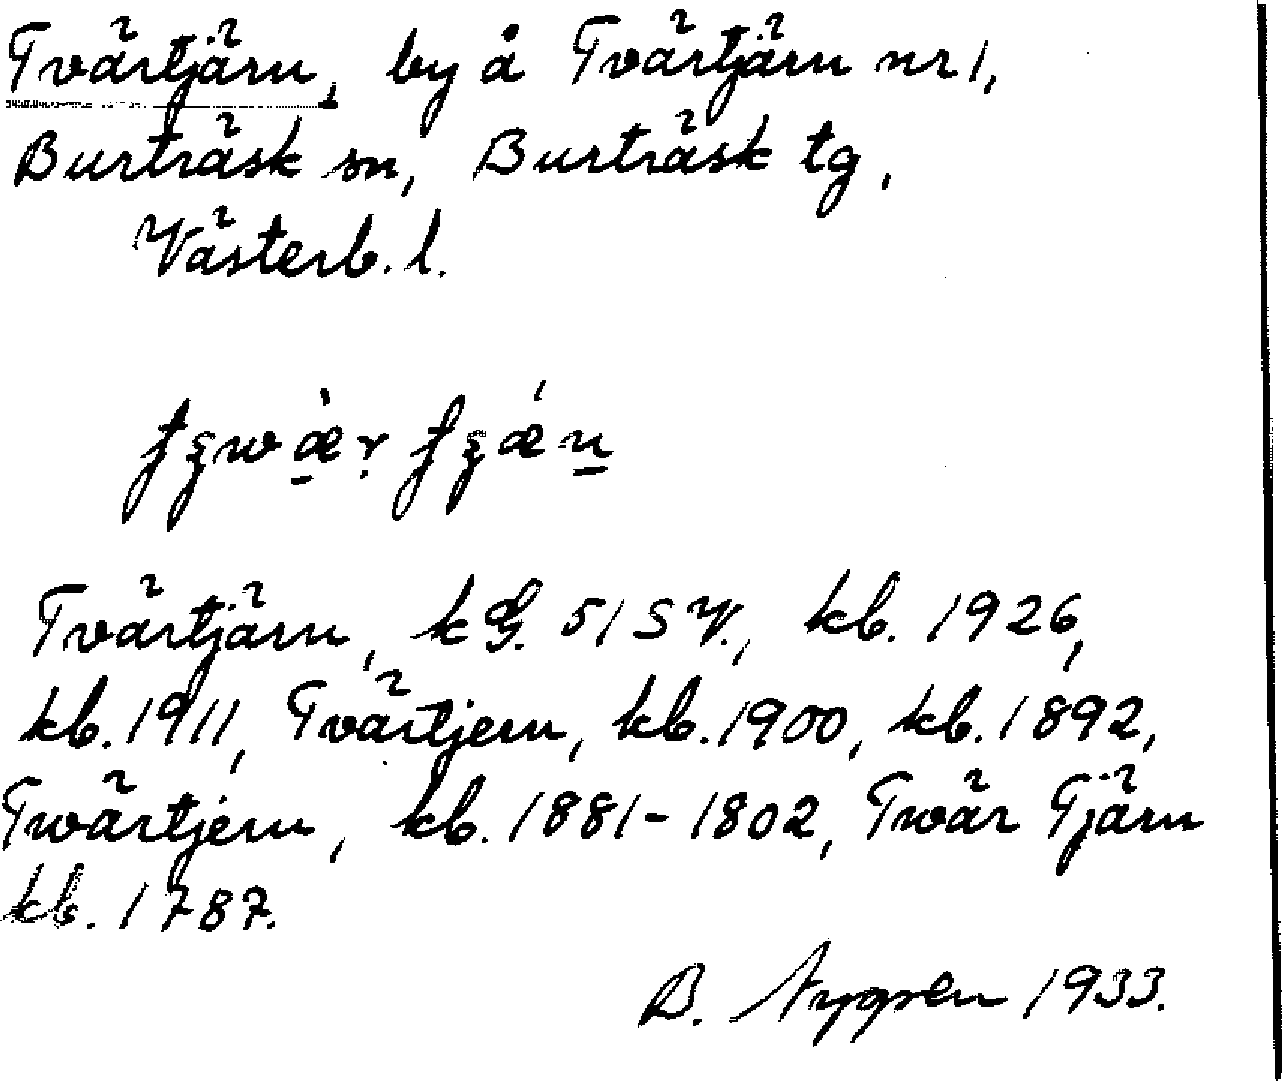 Tvärtjärn, by å Tvärtjärn nr 1,
Burträsk sn, Burträsk tg,
Västerb. l.
Tvärtjärn, kG. 51 SV., kb. 1926,
kb. 1911, Tvärtjern, kb. 1900, kb. 1892,
Twärtjern, kb. 1881-1802, Twär Tjärn
kb. 1787.
B. Nygren 1933.